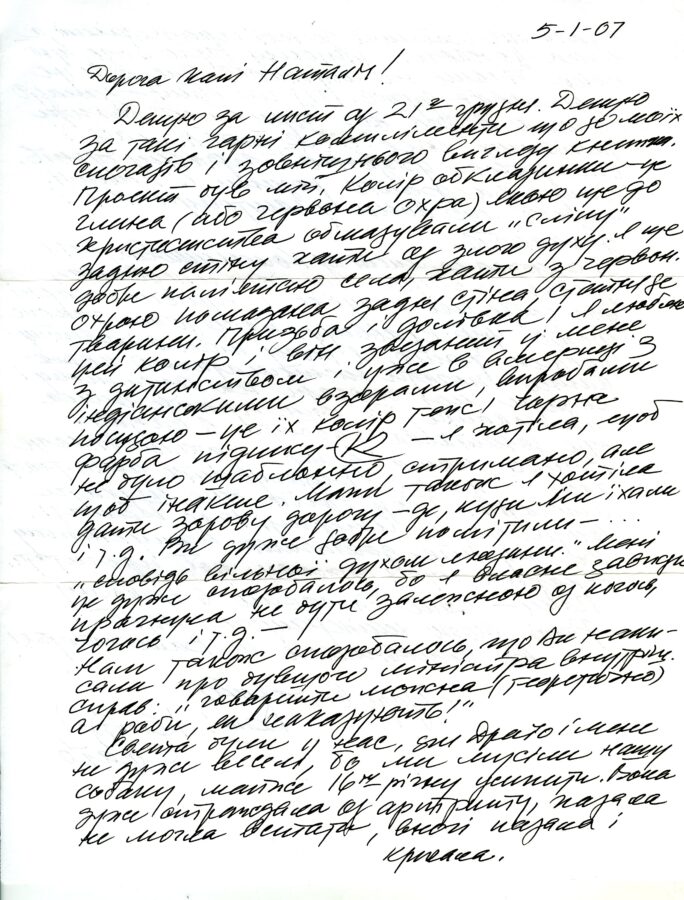 5-1-07
Дорога пані Наталю!
Дякую за лист од 21го грудня. Дякую
за такі гарні компліменти щодо моїх
спогадів і зовнішнього вигляду книжки.
Проєкт був мій. Колір обкладинки – це
глина (або червона охра) якою ще до
християнства обмазували „сліпу"
задню стіну хати од злого духу. Я ще
добре пам'ятаю села, хати з червон.
охрою помазана задня стіна
тварини. Призьба і долівка! Я люблю
цей колір і він звязаний у мене
з дитинством і уже в Америці з
індіанськими взорами, виробами
посудою – це їх колір теж! Чорна
фарба підпису – я хотіла, щоб
не було шаблонно отримано, але
щоб інакше. Мапи також я хотіла
дати зорову дорогу – де, куди ми їхали
і т.д. Ви дуже добре помітили – ...
„сповідь вільної духом людини." Мені
це дуже сподобалось, бо я власне завжди
прагнула не бути залежною од когось,
чогось і т.д. –
Нам також сподобалось, що Ви напи-
сали про бувшого міністра внутріш.
справ: „говорити можна (теоретично)
а роби, як наказують!"
Свята були у нас, для Драґо і мене
не дуже веселі, бо ми мусіли нашу
собаку, майже 16ти річну усипити. Вона
дуже страждала од артриту, падала
не могла встати, вночі падала і
кричала.